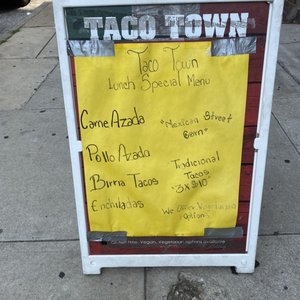 TACO TOWN
Taco Town
Lunch Special Menu
Carne Azada
*Mexican Street
Corn*
Pollo Azado
Tradicional
Tacos
*3x$10*
Birria Tacos
Enchiladas
We Offer Vegetarian
Options
Vegan, Vegetarian options available